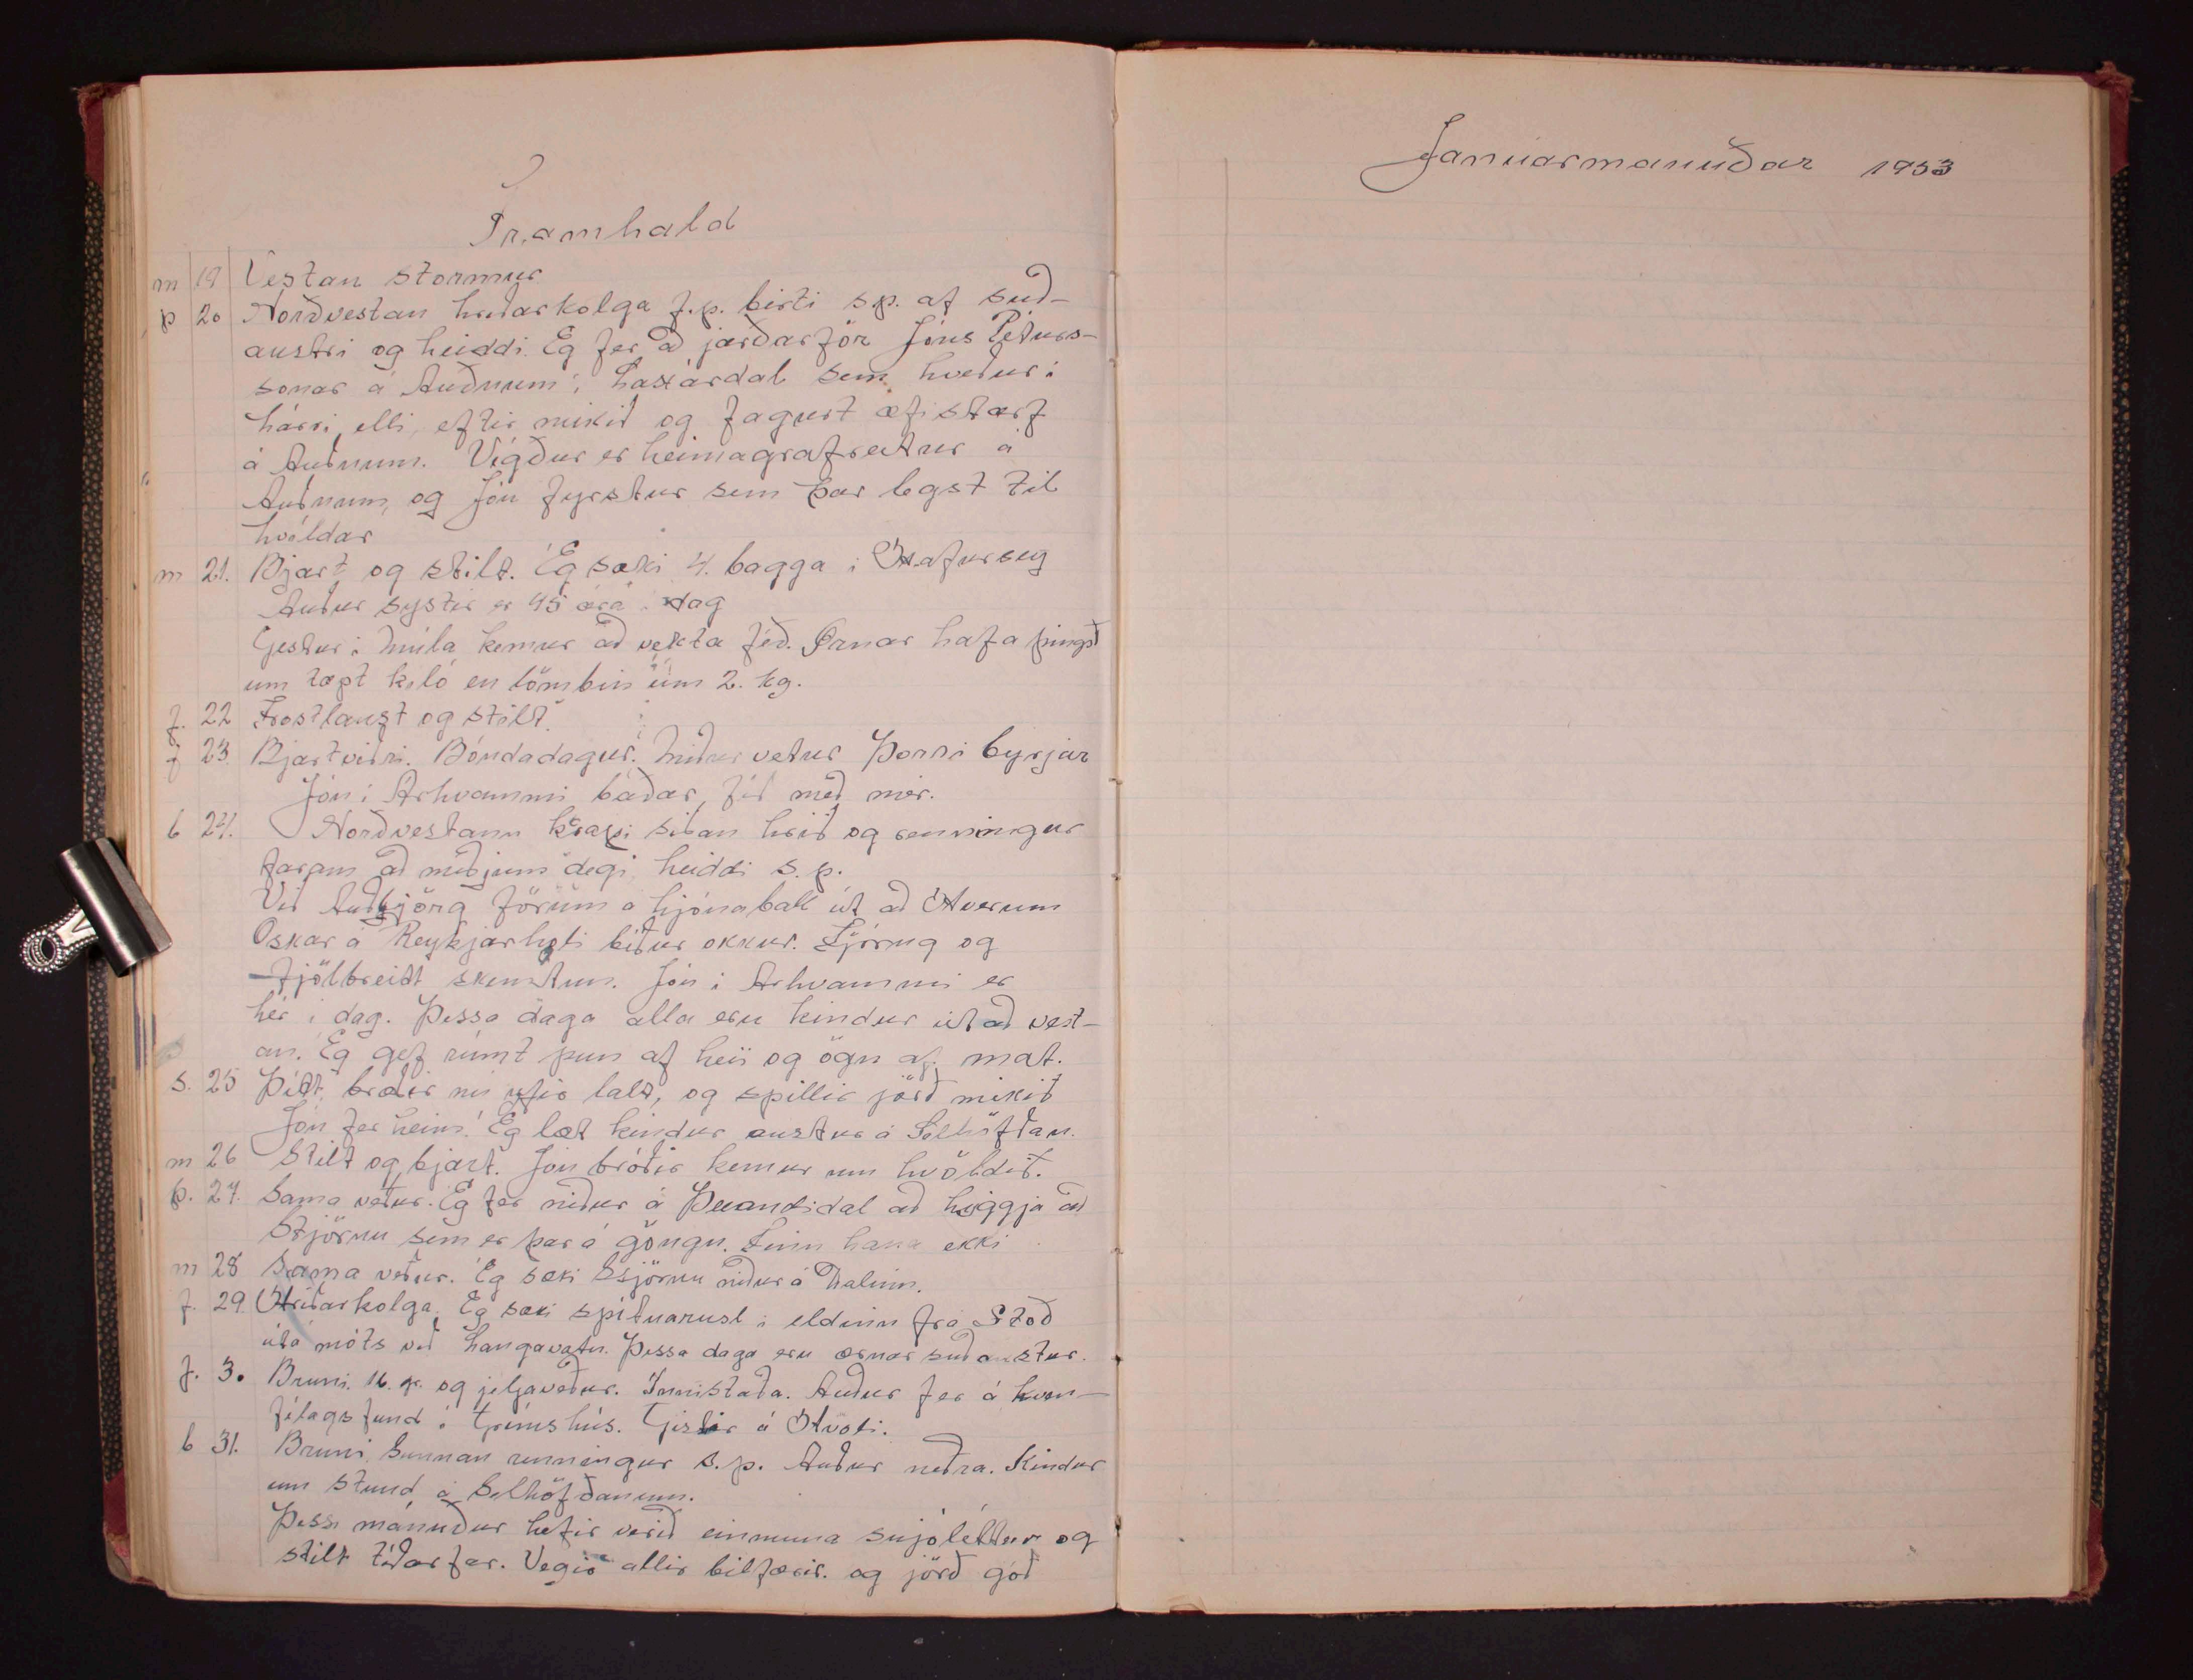 Framhald
Januarmanuðar 1953
m 19 Vestan stormur
þ 20 Norðvestan hriðarkolga f.p. birti sp. af suð-
austri og heiddi. Ég fer að jarðarför Jóns Péturs-
sonar á Auðnum i Laxárdal sem hveður i
hárri elli, eftir mikið og fagurt æfistarf
á Auðnum. Vígður er heimagrafreitur á
Auðnum, og Jón fyrstur sem þar legst til
hvíldar
m 21. Bjart og stilt. Ég sæki 4. bagga i Hafursey
Auður systir er 45 ára i dag
Gestur i Múla kemur að vekta féð. Ærnar hafa þingst
um tæpt kíló en lömbin um 2. kg.
f. 22 Frostlaust og stilt.
f 23. Bjartviðri. Bóndadagur. Miður vetur Þorri byrjar
Jón i Árhvammi baðar, féð með mér.
l 24. Norðvestann krapi siðan hrið og renningur
fram að miðjum degi, heiddi s.p.
Við Auðbjörg förum á hjónaball út að Hverum
Oskar á Reykjarhóli biður okkur. Fjörug og
fjölbreitt skemtun. Jón i Árhvammi er
hér i dag. Þessa daga alla eru kindur út að vest-
an. Ég gef rúmt pun af heii og ögn af mat.
s. 25 Þítt, bræðir nú ufir lalt, og spillir jörð mikið
Jón fer heim. Ég læt kindur austur á Selhöfðan.
m 26 Stilt og bjart. Jón bróðir kemur um kvöldið.
þ. 27. Sama veður. Ég fer niður á Þeandidal að hyggja að
Stjörnu sem er þar á göngu. Finn hana ekki
m 28 Sama veður. Ég sæki Stjörnu niður á Dalinn.
f. 29. Hriðarkolga. Ég sæki spítnarusl i eldinn frá Stöð
útá móts við Langavatn. Þessa daga eru ærnar suðaustur.
f. 30 Bruni. 16. gr. og jeljaveður. Innistaða. Auður fer á kven-
félagsfund i Grímshús. Gistir á Hvoli.
l 31. Bruni, Sunnan renningur s.p. Auður neðra. Kindur
um stund á Selhöfðanum.
Þessi mánuður hefir verið einmuna snjóléttur og
stilt tíðarfar. Vegir allir bilfærir. og jörð góð